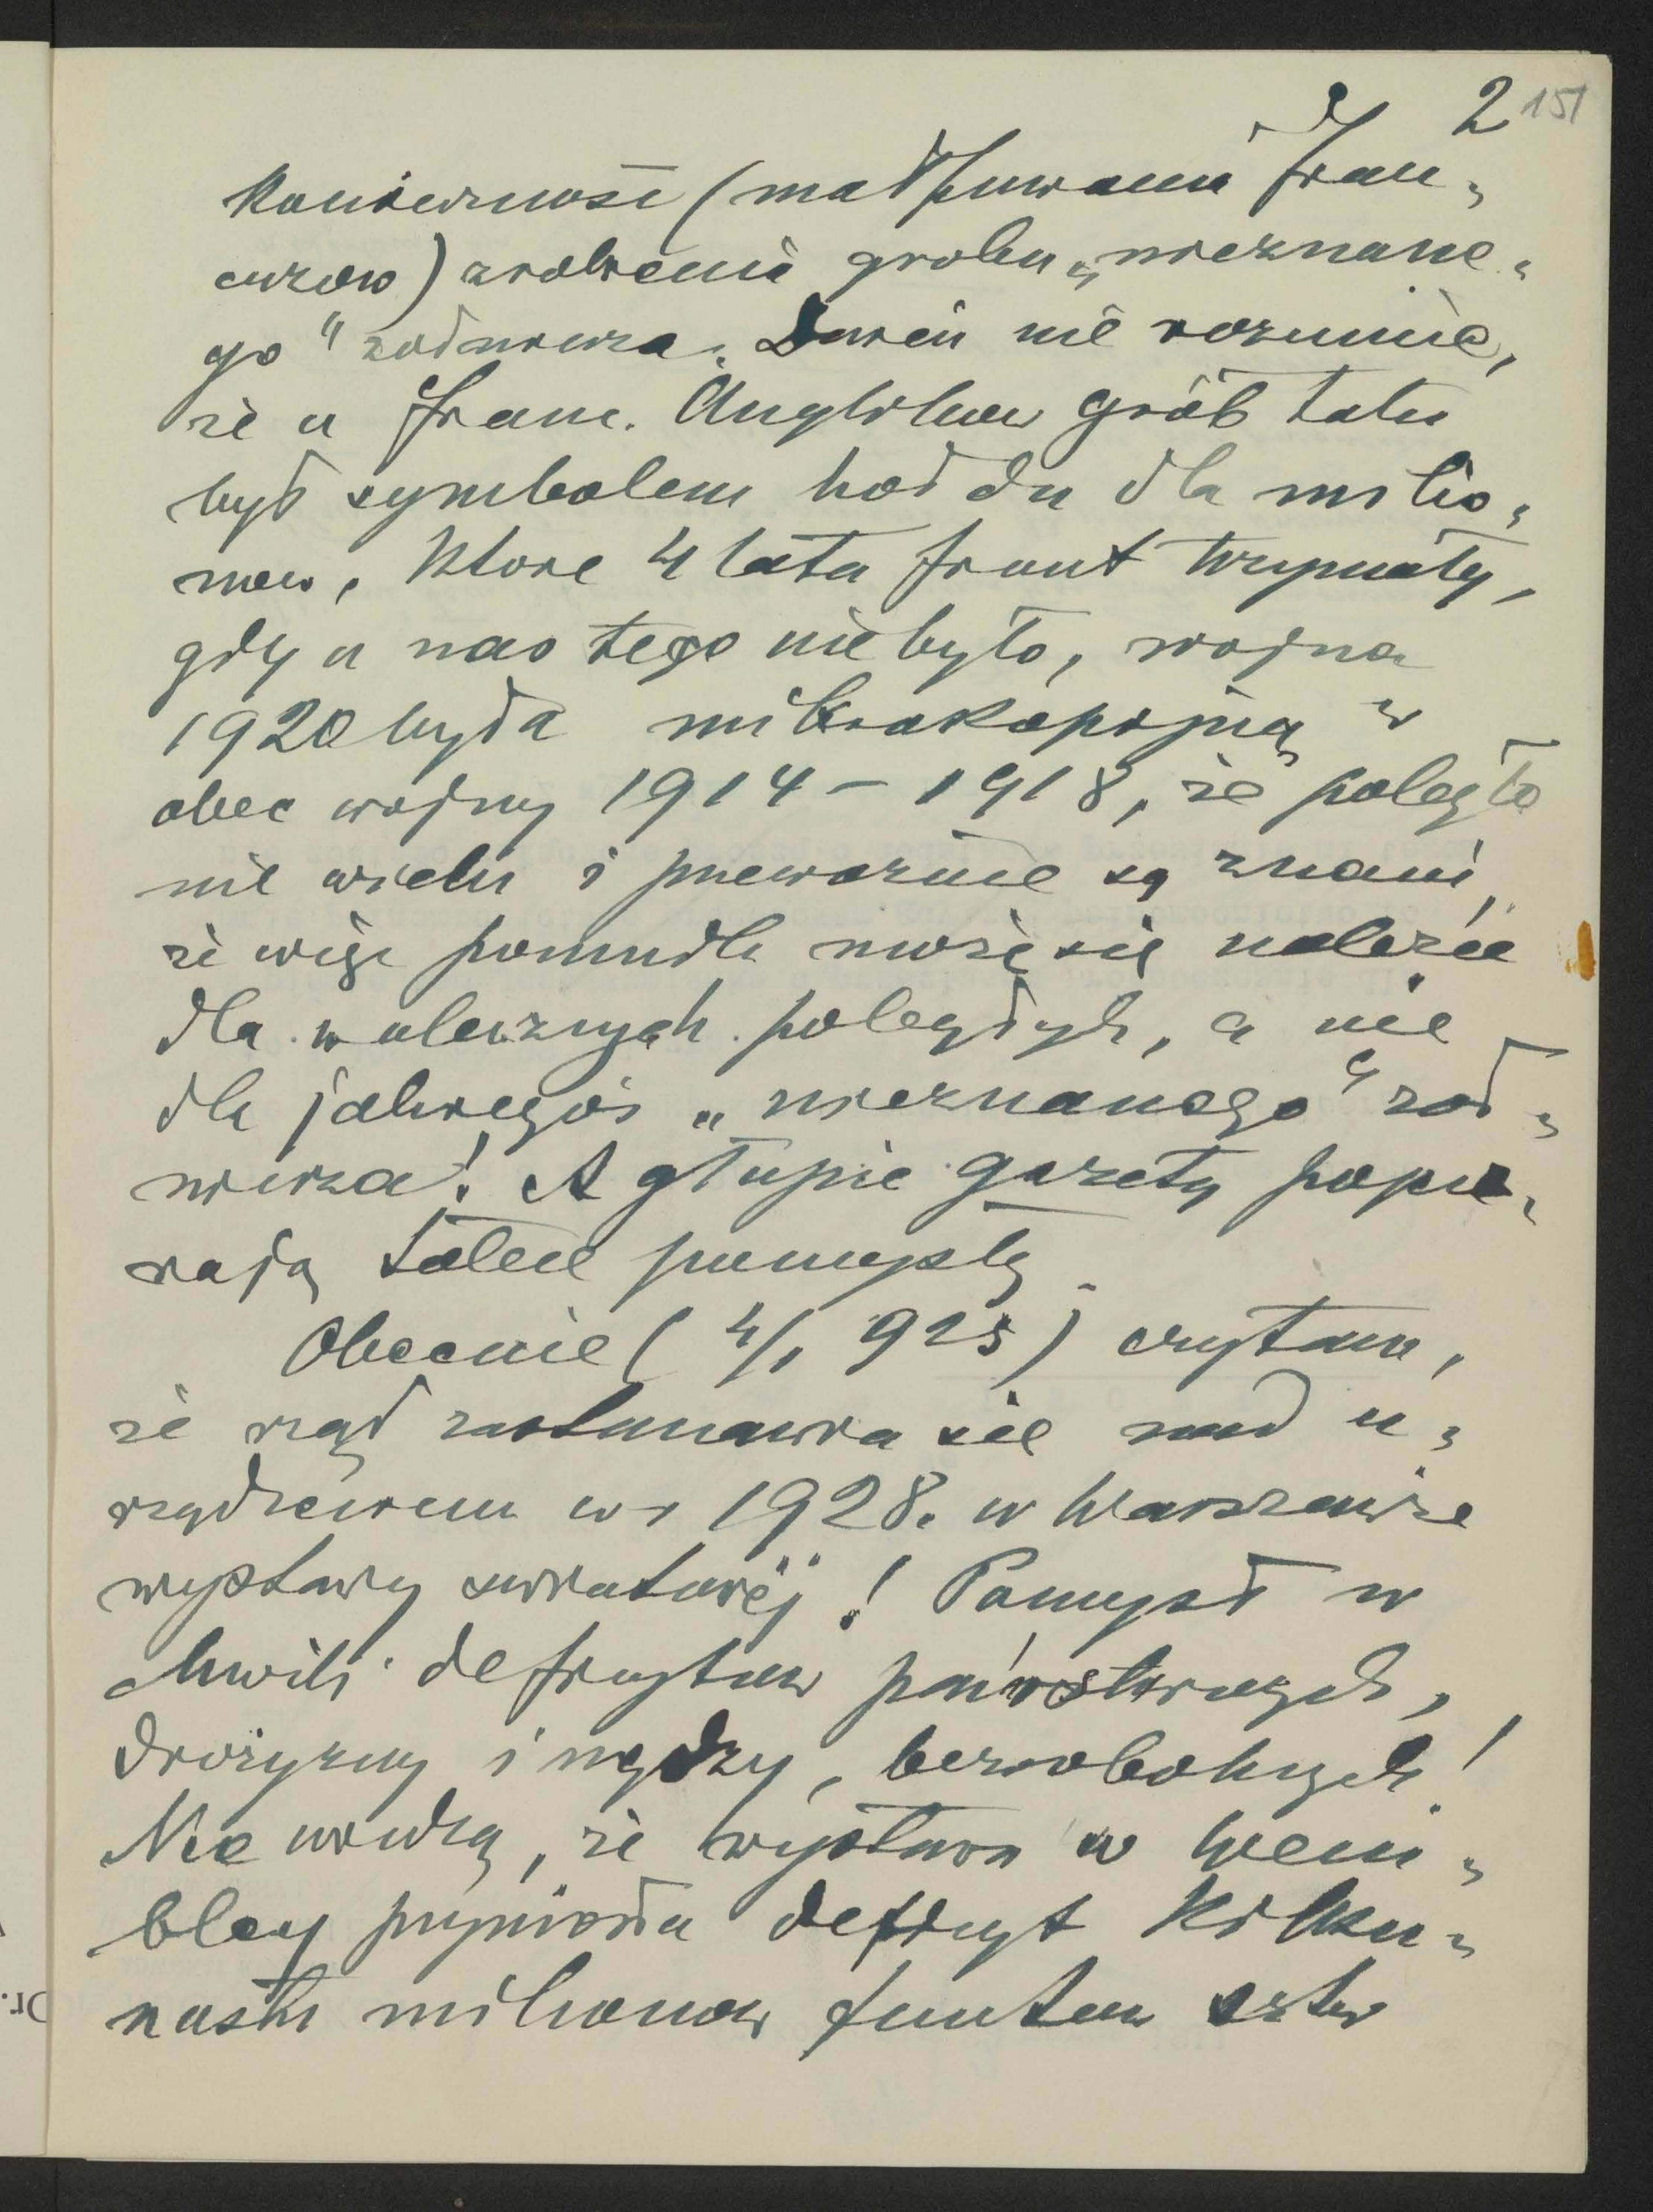 2 151
konieczność (małpowania Fran-
cuzów) zrobienia grobu „nieznane-
go" żołnierza. Dureń nie rozumie,
że u Franc. Anglików grób taki
był symbolem hołdu dla milio-
nów, które 4 lata front trzymały,
gdy u nas tego nie było, wojna
1920 była mikroskopijną w
obec wojny 1914 – 1918, że poległo
nie wielu i przeważnie są znani,
że więc pomnik może się należeć
dla walecznych poległych, a nie
dla jakiegoś „nieznanego" żoł-
nierza! A głupie gazety popie-
rają takie pomysły.
Obecnie (4/1 925) czytam,
że rząd zastanawia się nad u-
rządzeniem w r 1928. w Warszawie
wystawy światowéj! Pomysł w
chwili deficytów państwowych,
drożyzny i nędzy, bezrobotnych!
Nie widzą, że wystawa w Wem-
bley przyniosła deficyt kilku-
nastu milionów funtów sztr